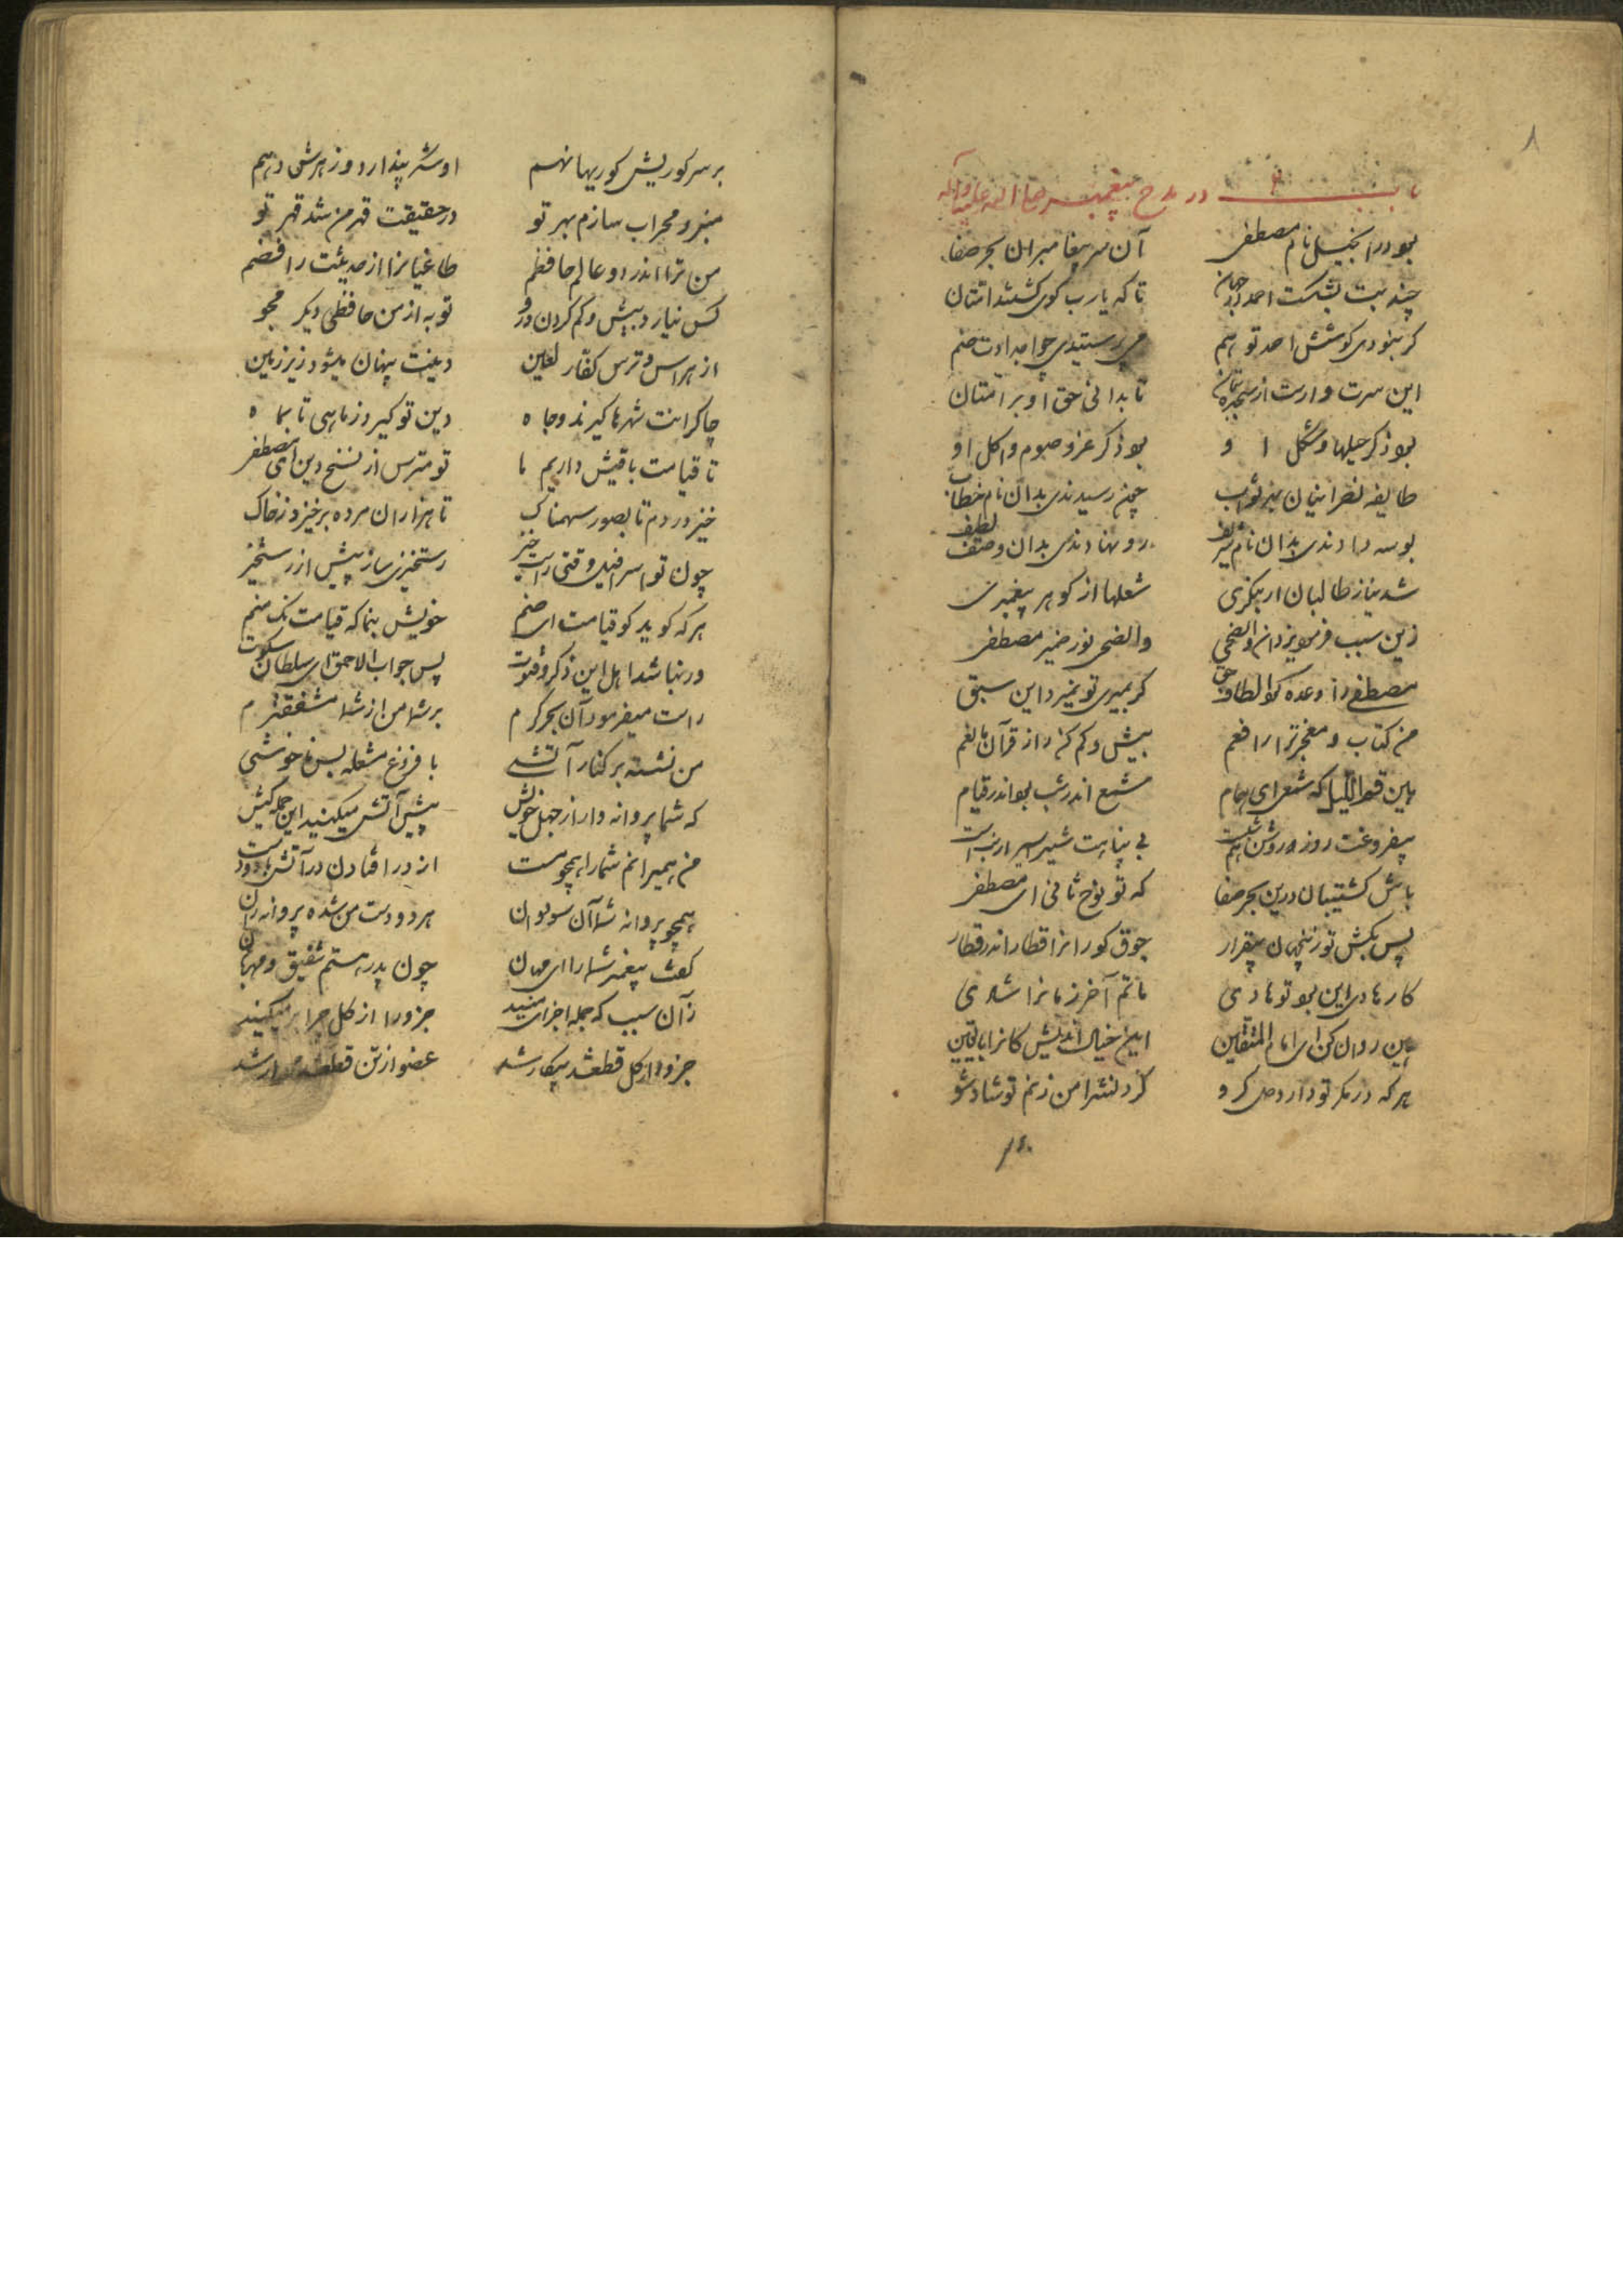 ۸
باب در مدح پیغمبر صلی الله علیه وآله
بود در انجیل نام مصطفی آن سر پیغامبران بحر صفا
چند بت بشکست احمد در جهان تا که یارب گوی گشتند امتان
گر نبودی کوشش احمد تو هم می پرستیدی چو اجدادت صنم
این سرت وارست از سجده بتان تا بدانی حق او بر امتان
بود ذکر حیلها و شکل او بود ذکر غزو و صوم و اکل او
طایفه نصرانیان بهر ثواب چون رسیدندی بدان نام خطاب
بوسه دادندی بدان نام شریف رو نهادندی بدان وصف لطیف
شد نیاز طالبان ار بنگری شعلها از گوهر پیغمبری
زین سبب فرمود یزدان والضحی والضحی نور ضمیر مصطفی
مصطفی را وعده کرد الطاف حق گر بمیری تو نمیرد این سبق
من کتاب و معجزت را رافعم بیش و کم کن را ز قرآن مانعم
هین قم اللیل که شمعی ای همام شمع اندر شب بود اندر قیام
بیفروغت روز روشن هم شبست بی پناهت شیر اسیر ارنبست
باش کشتیبان درین بحر صفا که تو نوح ثانی ای مصطفی
پس بکش تو زین جهان بیقرار جوق کورانرا قطار اندر قطار
کار هادی این بود تو هادی ماتم آخر زمانرا شادی
هین روان کن ای امام المتقین این خیال اندیش کانرا تا یقین
هر که در مکر تو دارد دل گرو گردنش را من زنم تو شاد شو
بر سر کوریش کوریها نهم او شکر پندارد و زهرش دهم
منبر و محراب سازم بهر تو در حقیقت قهر من شد قهر تو
من ترا اندر دو عالم حافظم طاغیانرا از حدیثت رافضم
کس نیارد بیش و کم کردن درو تو به از من حافظی دیگر مجو
از هراس و ترس کفار لعین دینت پنهان میشود زیر زمین
چاکرانت شهرها گیرند و جاه دین تو گیرد ز ماهی تا بماه
تا قیامت باقیش داریم ما تو مترس از نسخ دین ای مصطفی
خیز در دم تا بصور سهمناک تا هزاران مرده برخیزد ز خاک
چون تو اسرافیل وقتی راست خیز رستخیزی ساز پیش از رستخیز
هر که گوید کو قیامت ای صنم خویش بنما که قیامت نک منم
ور نباشد اهل این ذکر و قنوت پس جواب الاحمق ای سلطان سکوت
راست میفرمود آن بحر کرم بر شما من از شما مشفقترم
من نشسته بر کنار آتشی با فروغ مشعله بس ناخوشی
که شما پروانه وار از جهل خویش پیش آتش میکنید این حمله کیش
من همیرانم شما را همچو مست از در افتادن در آتش با دو دست
همچو پروانه شما آن سو دوان هر دو دست من شده پروانه ران
گفت پیغمبر شما را ای مهان چون پدر هستم شفیق و مهربان
زآن سبب که جمله اجزای منید جزو را از کل چرا بر میکنید
جزو از کل قطع شد بیکار شد عضو از تن قطع شد مردار شد